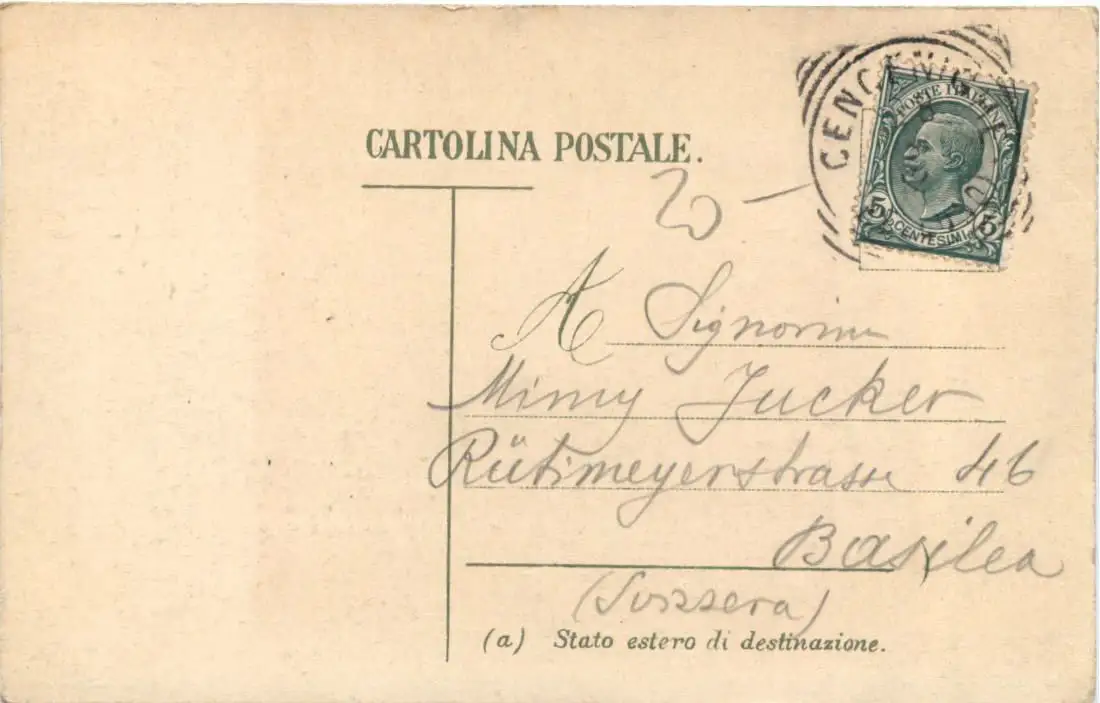 CARTOLINA POSTALE.
CENCENIGHE
POSTE ITALIANE
5 CENTESIMI 5
20 -
A Signorina
Mimy Jucker
Rütimeyerstrasse 46
Basilea
(Svizzera)
(a) Stato estero di destinazione.